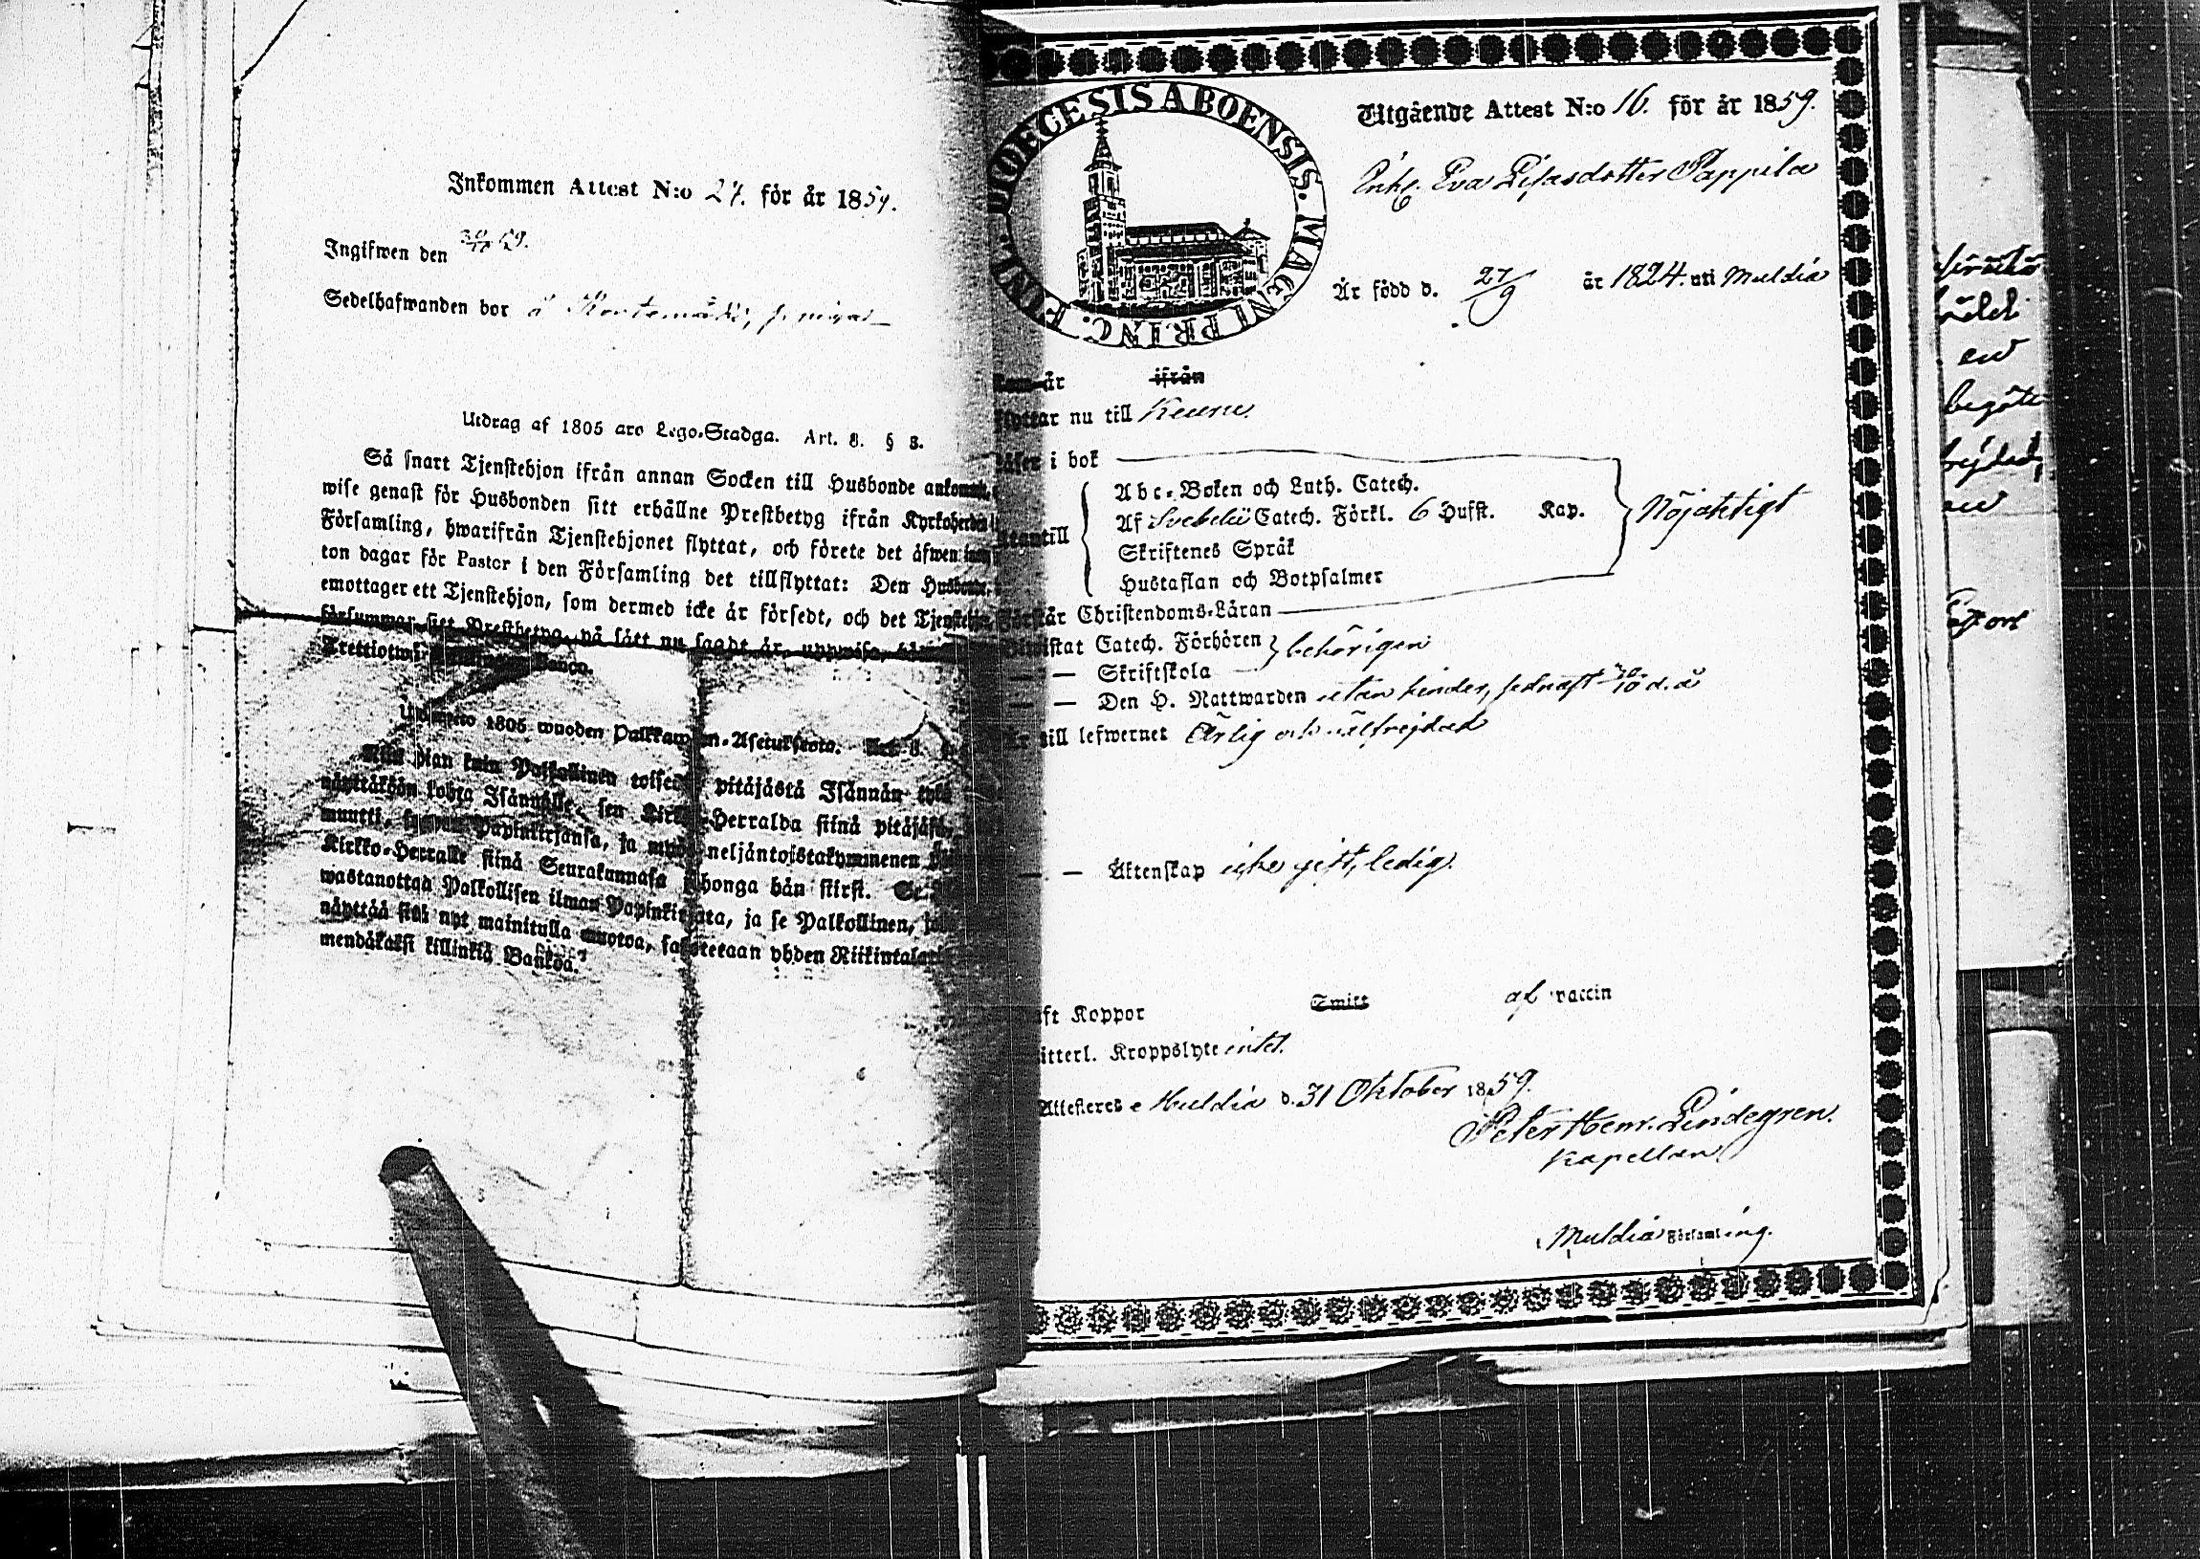 Inkommen Attest N:o 27. för år 1859.
Ingifwen den 30/10 59.
Sedelhafwanden bor å
Utdrag af 1805 års Lego-Stadga. Art. 8. § 8.
Så snart Tjenstehjon ifrån annan Socken till Husbonde ankommit,
wise genast för Husbonden sitt erhållne Prestbetyg ifrån Kyrkoherden i
Församling, hwarifrån Tjenstehjonet flyttat, och förete det äfwen inom
ton dagar för Pastor i den Församling det tillflyttat: Den Husbonde,
emottager ett Tjenstehjon, som dermed icke är försedt, och det Tjenstehjon,
försummar sitt Prestbetyg, på sätt nu sagdt är, uppwisa,
Banco.
1805 wuoden Palkkawäen-Asetuksesta. Art. 8.
Niin pian kuin Palkollinen toisesta pitäjästä Isännän tykö
näyttäköön kohta Isännälle, sen Kirkko-Herralda siinä pitäjäsä,
muutti, Papinkirjansa, ja myös neljäntoistakymmenen
Kirkko-Herralle siinä Seurakunnasa jhonga hän siirsi. Se
wastanottaa Palkollisen ilman Papinkirjata, ja se Palkollinen, joka
näyttää sitä nyt mainitulla muotoa, sakotetaan yhden Riikintalarin
mendäkaksi killinkiä Bankoa.
DIOECESIS ABOENSIS. MAGNI PRINC. FINL.
Utgående Attest N:o 16. för år 1859.
Enkl. Eva Eliasdotter Pappila
Är född d. 27/9 år 1824. uti Muldia
Kom år ifrån
flyttar nu till Keuru
Läser i bok
Abc-Boken och Luth. Catech.
Af Svebelii Catech. Förkl. 6 Hufst. Kap. Nöjaktigt
utantill
Skriftenes Språk
Hustaflan och Botpsalmer
Förstår Christendoms-Läran
Bewistat Catech. Förhören behörigen
— — Skriftskola
— — Den H. Nattwarden utan hinder, sednast 30/10 d. å
Är till lefwernet Ärlig och välfrejdad
— — Äktenskap icke gift, ledig.
Haft Koppor Smitt af vaccin
Kroppslyte intet.
Attesteres e Muldia d. 31 Oktober 1859.
Peter Henr. Lindegren.
Kapellan
Muldia Församling.